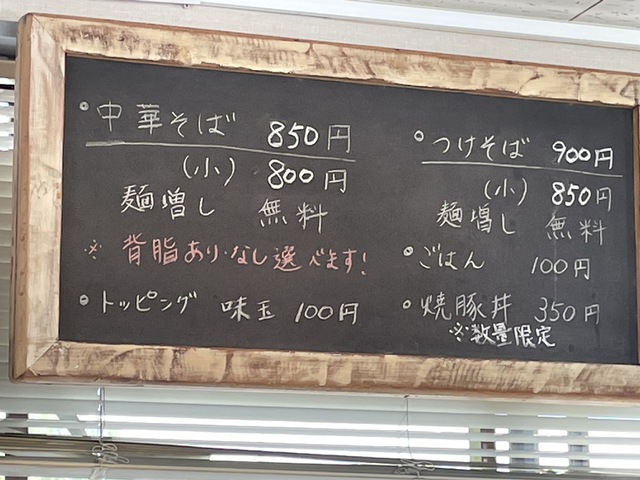 ◦中華そば 850円
(小) 800円
麺増し 無料
※ 背脂あり・なし選べます!
◦トッピング 味玉 100円
◦つけそば 900円
(小) 850円
麺増し 無料
◦ごはん 100円
◦焼豚丼 350円
※数量限定